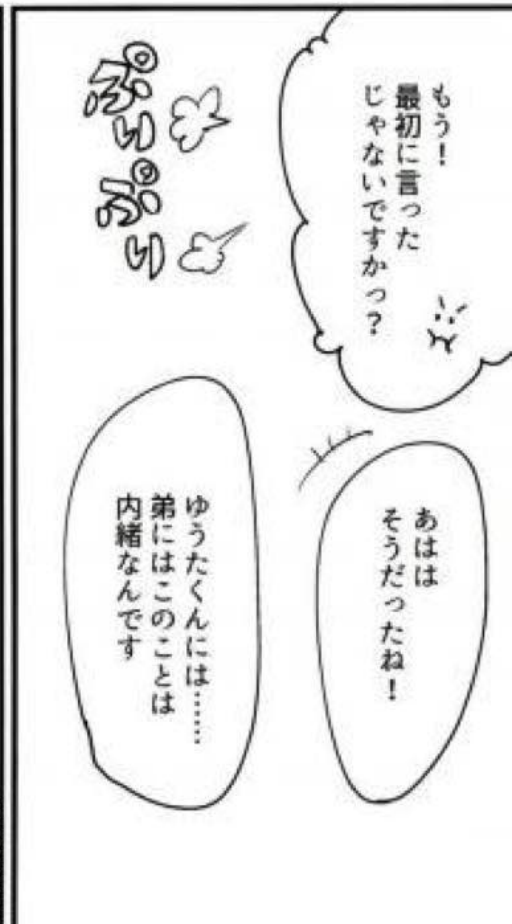 もう!
最初に言った
じゃないですかっ?
ぷりぷり
あはは
そうだったね!
ゆうたくんには……
弟にはこのことは
内緒なんです